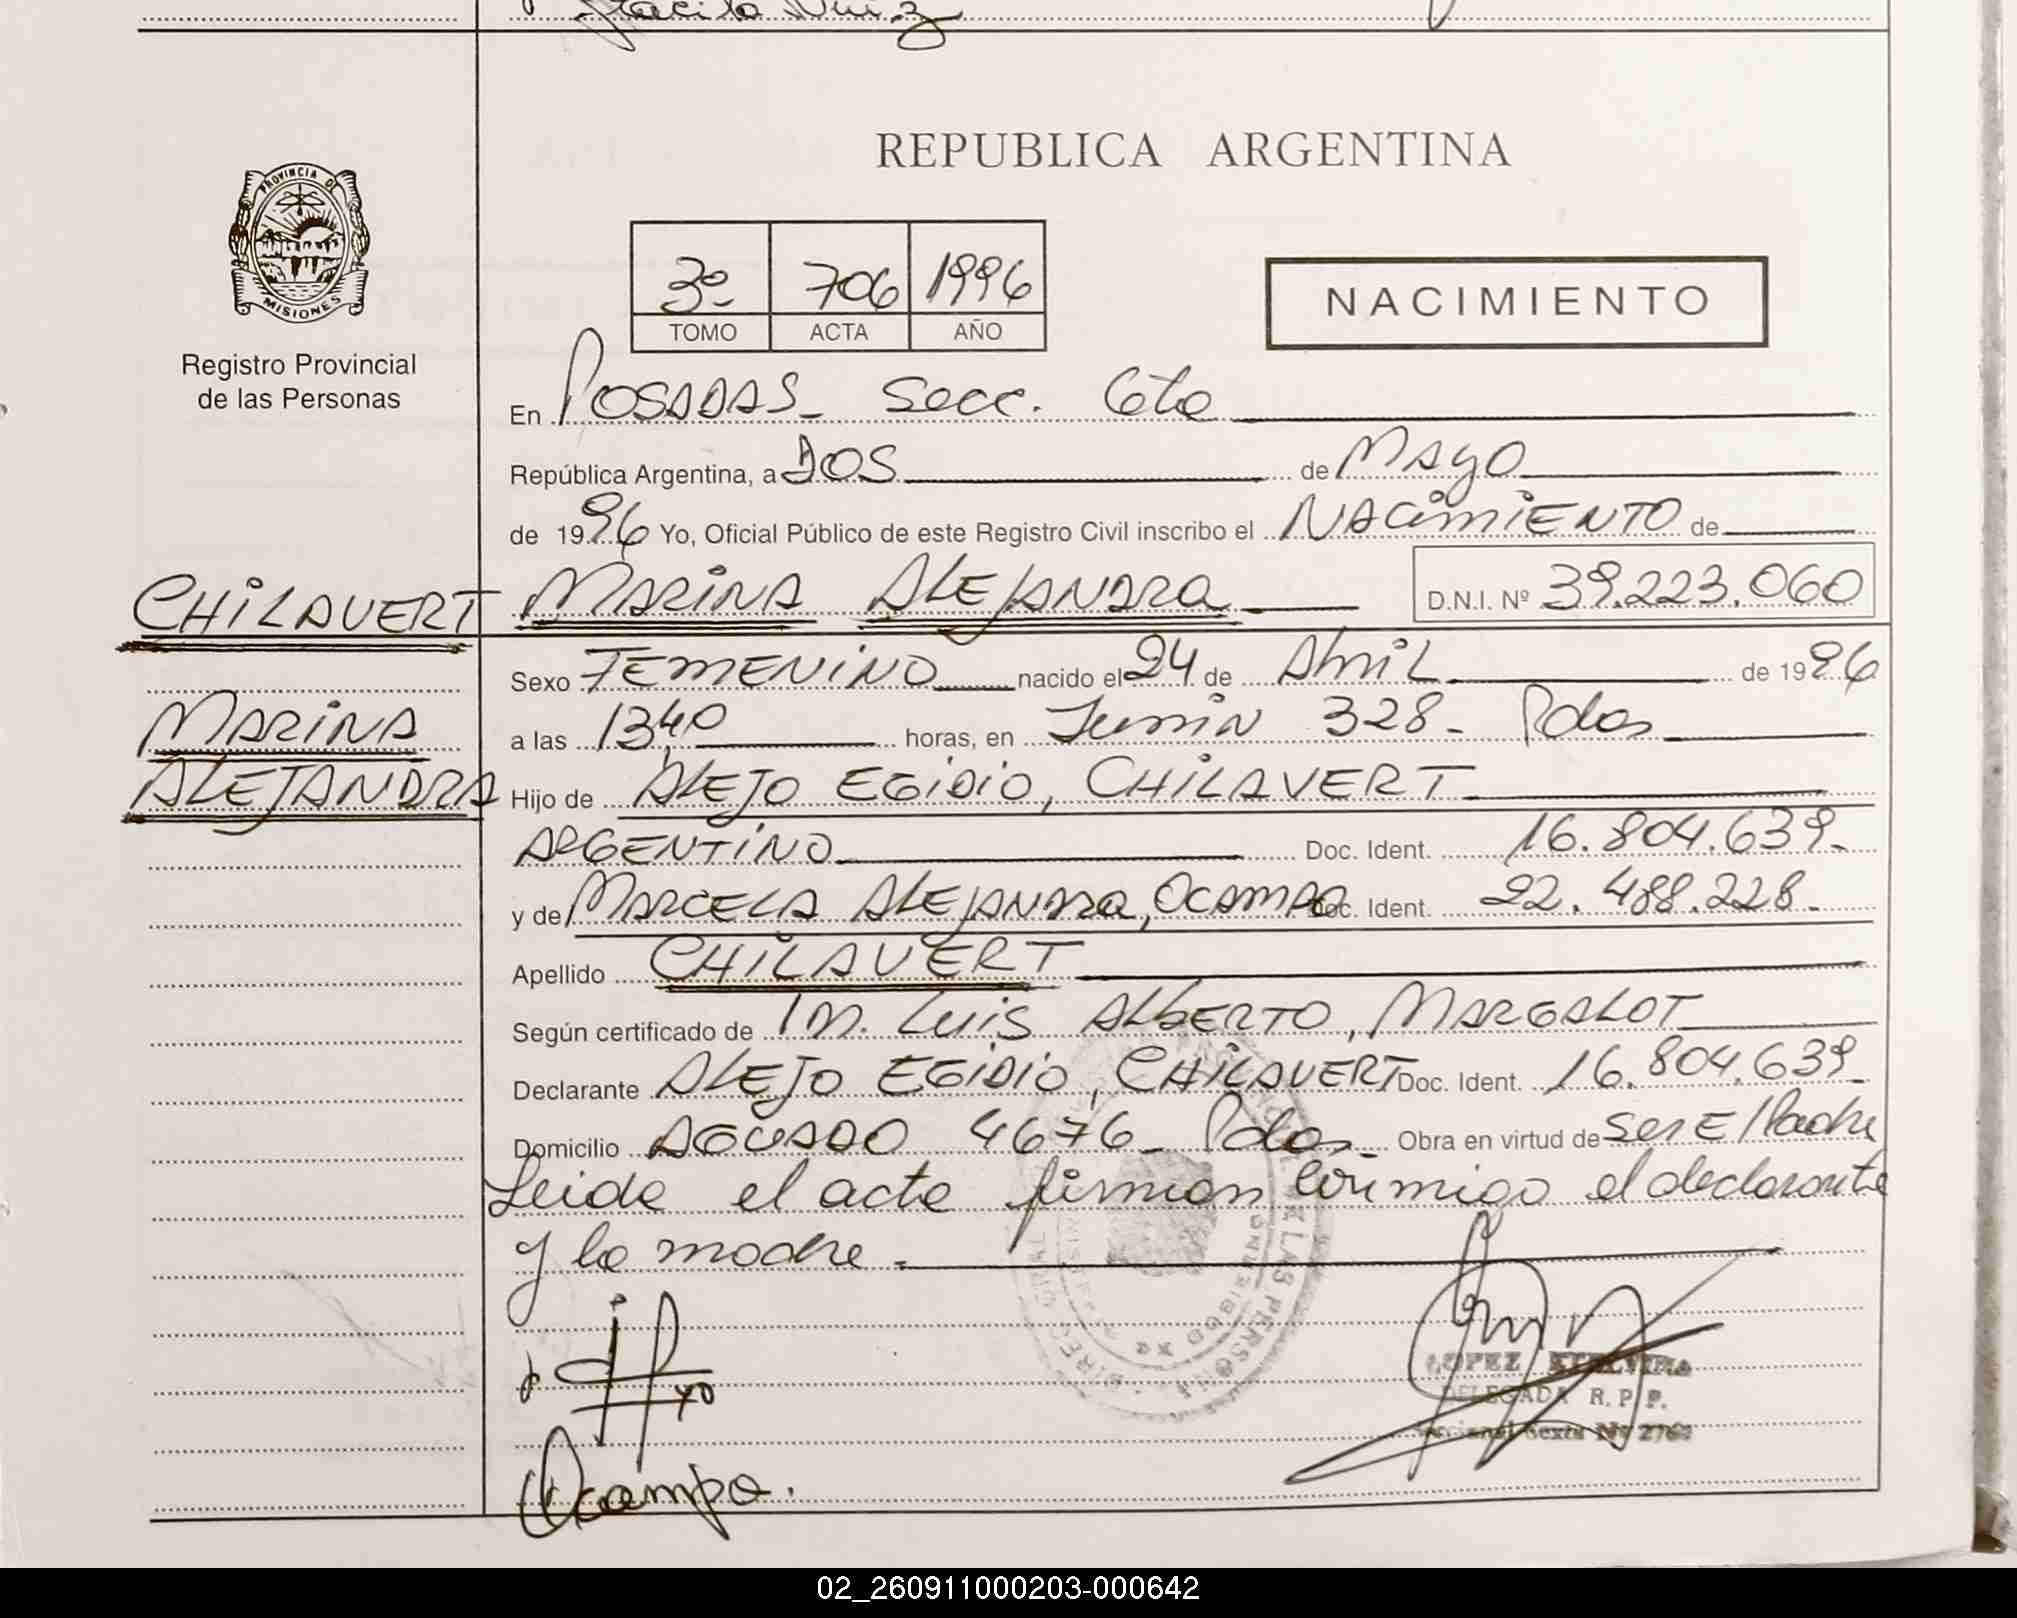 REPUBLICA ARGENTINA
PROVINCIA DE
MISIONES
Registro Provincial
de las Personas
3º 706 1996
TOMO ACTA AÑO
NACIMIENTO
En POSADAS - Secc. 6ta
República Argentina, a DOS de MAYO
de 1996 Yo, Oficial Público de este Registro Civil inscribo el NACIMIENTO de
CHILAVERT MARINA ALEJANDRA D.N.I. Nº 39.223.060
Sexo FEMENINO nacido el 24 de Abril de 1996
MARINA
a las 13,40 horas, en Junin 328 - Pdas
ALEJANDRA
Hijo de ALEJO EGIDIO, CHILAVERT
ARGENTINO Doc. Ident. 16.804.639-
y de MARCELA ALEJANDRA, OCAMPO Doc. Ident. 22.488.228-
Apellido CHILAVERT
Según certificado de LUIS ALBERTO, MARGALOT
Declarante ALEJO EGIDIO, CHILAVERT Doc. Ident. 16.804.639-
Domicilio AGUADO 4676 - Pdas - Obra en virtud de Ser El Padre
Leida el acta firman conmigo el declarante
y la madre.-
LOPEZ ETELVINA
DELEGADA R. P. P.
Seccional Sexta Nº 2762
Ocampo.
02_260911000203-000642